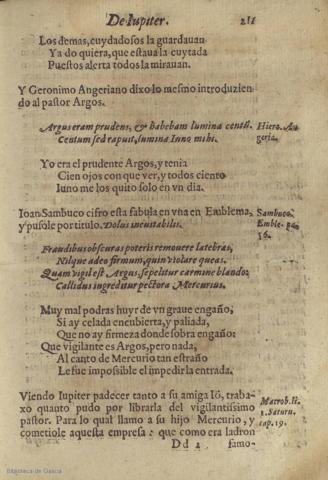 De Iupiter. 211
Los demas, cuydadosos la guardauan
Ya do quiera, que estaua la cuytada
Puestos alerta todos la mirauan.
Y Geronimo Angeriano dixo lo mesmo introduzien
do al pastor Argos.
Argus eram prudens, & habebam lumina centũ.
Centum sed rapuit, lumina Iuno mihi.
Hiero. An
geria.
Yo era el prudente Argos, y tenia
Cien ojos con que ver, y todos ciento
Iuno me los quito solo en vn dia.
Ioan Sambuco cifro esta fabula en vna en Emblema,
y pusole por titulo. Dolus ineuitabilis.
Sambuco.
Emble. pa.
Fraudibus obscuras poteris remouere latebras,
Nilque adeo firmum, quin violare queas.
Quam vigil est Argus, sepelitur carmine blando:
Callidus ingreditur pectora Mercurius.
Muy mal podras huyr de vn graue engaño,
Si ay celada encubierta, y paliada,
Que no ay firmeza donde sobra engaño:
Que vigilante es Argus, pero nada,
Al canto de Mercurio tan estraño
Le fue impossible el impedir la entrada.
Viendo Iupiter padecer tanto a su amiga Iô, traba-
xo quanto pudo por librarla del vigilantissimo
pastor. Para lo qual llamo a su hijo Mercurio, y
cometiole aquesta empresa: que como era ladron
Macrob. li.
1. Saturn.
cap. 19.
Dd 2 famo-
Biblioteca de Galicia